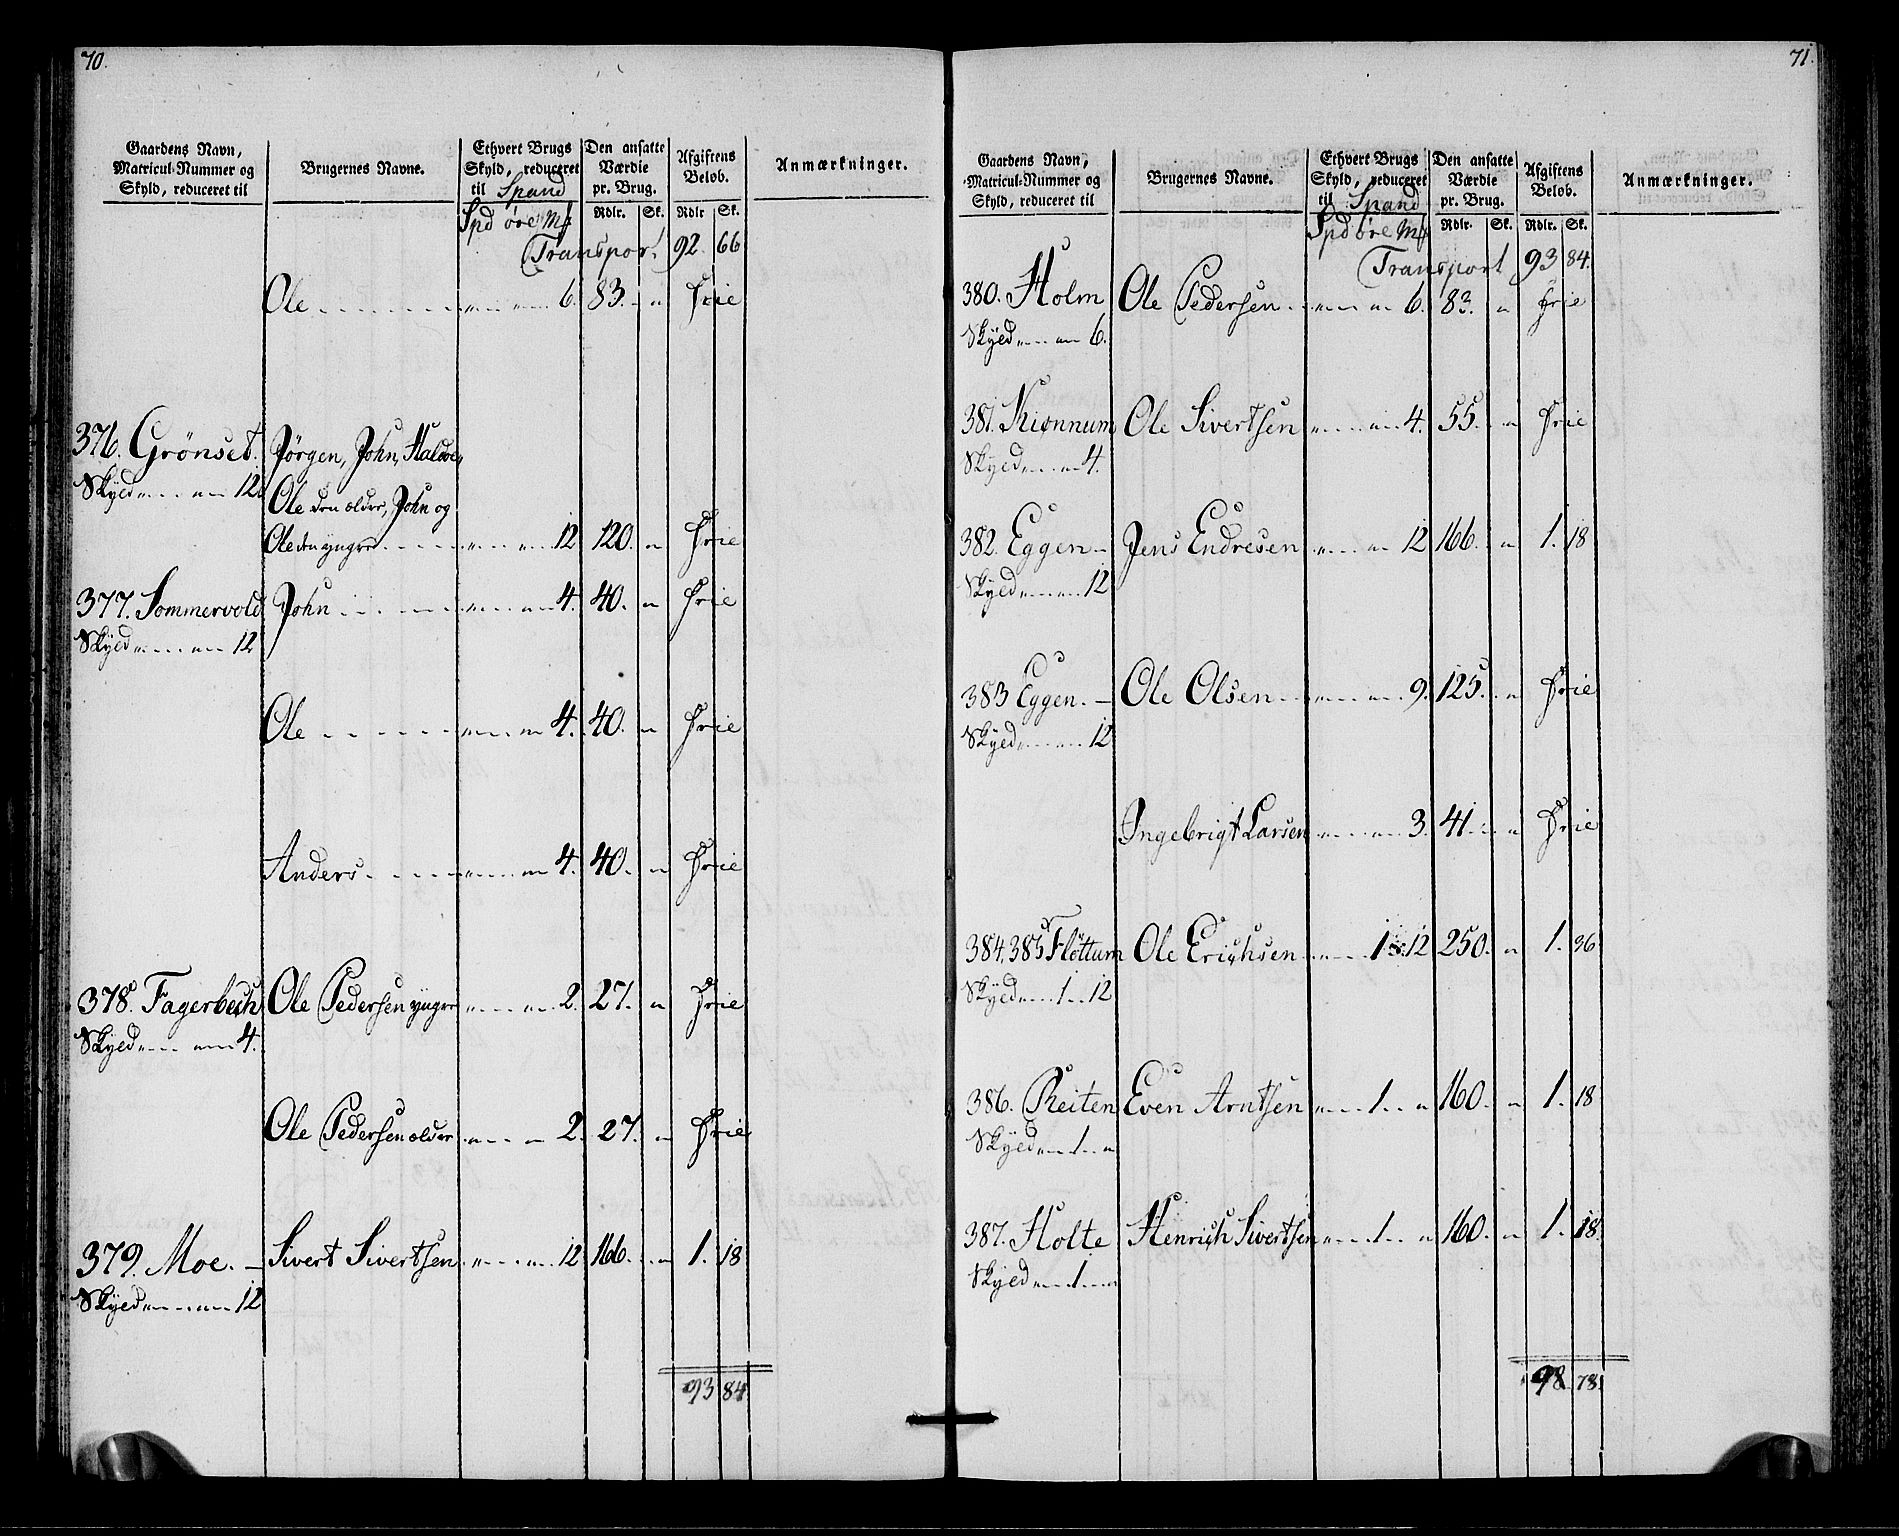 70.
Gaardens Navn, Matricul-Nummer og Skyld, reduceret til | Brugernes Navne. | Ethvert Brugs Skyld, reduceret til Spand | Den ansatte Værdie pr. Brug. | Afgiftens Beløb. | Anmærkninger.
Spd øre Mf | Rdlr. | Sk. | Rdlr | Sk.
Transport 92. 66
Ole 6. 83. Frie
376. Grönset. Jörgen, John, Haldor,
Skyld 12. Ole den ældre, John og
Ole den yngre 12 120. Frie
377. Sommervold John 4. 40. Frie
Skyld 12
Ole 4. 40. Frie
Anders 4. 40. Frie
378. Fagerbech Ole Pedersen yngre 2. 27. Frie
Skyld 4.
Ole Pedersen ældre 2. 27. Frie
379. Moe. Sivert Sivertsen 12 166. 1. 18
Skyld 12
93 84
71.
Gaardens Navn, Matricul-Nummer og Skyld, reduceret til | Brugernes Navne. | Ethvert Brugs Skyld, reduceret til Spand | Den ansatte Værdie pr. Brug. | Afgiftens Beløb. | Anmærkninger.
Spd øre Mf | Rdlr. | Sk. | Rdlr. | Sk.
Transport 93 84.
380. Holm Ole Pedersen 6. 83. Frie
Skyld 6.
381. Kiønnum Ole Sivertsen 4. 55. Frie
Skyld 4.
382. Eggen Jens Endresen 12 166. 1. 18
Skyld 12
383 Eggen. Ole Olsen 9. 125. Frie
Skyld 12
Ingebrigt Larsen 3. 41. Frie
384, 385 Fløttum Ole Erichsen 1 12 250. 1. 36
Skyld 1 12
386. Reiten Even Arntsen 1 160. 1. 18
Skyld 1
387. Holte Henrich Sivertsen 1 160. 1. 18.
Skyld 1
98 78.